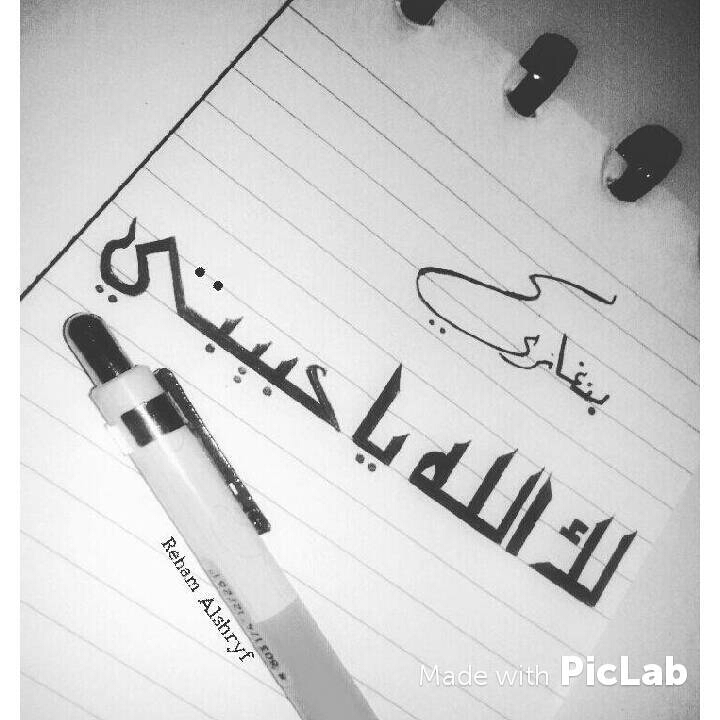 بنغازي
لك الله يا حبيبتي
Reham Alshryf
Made with PicLab